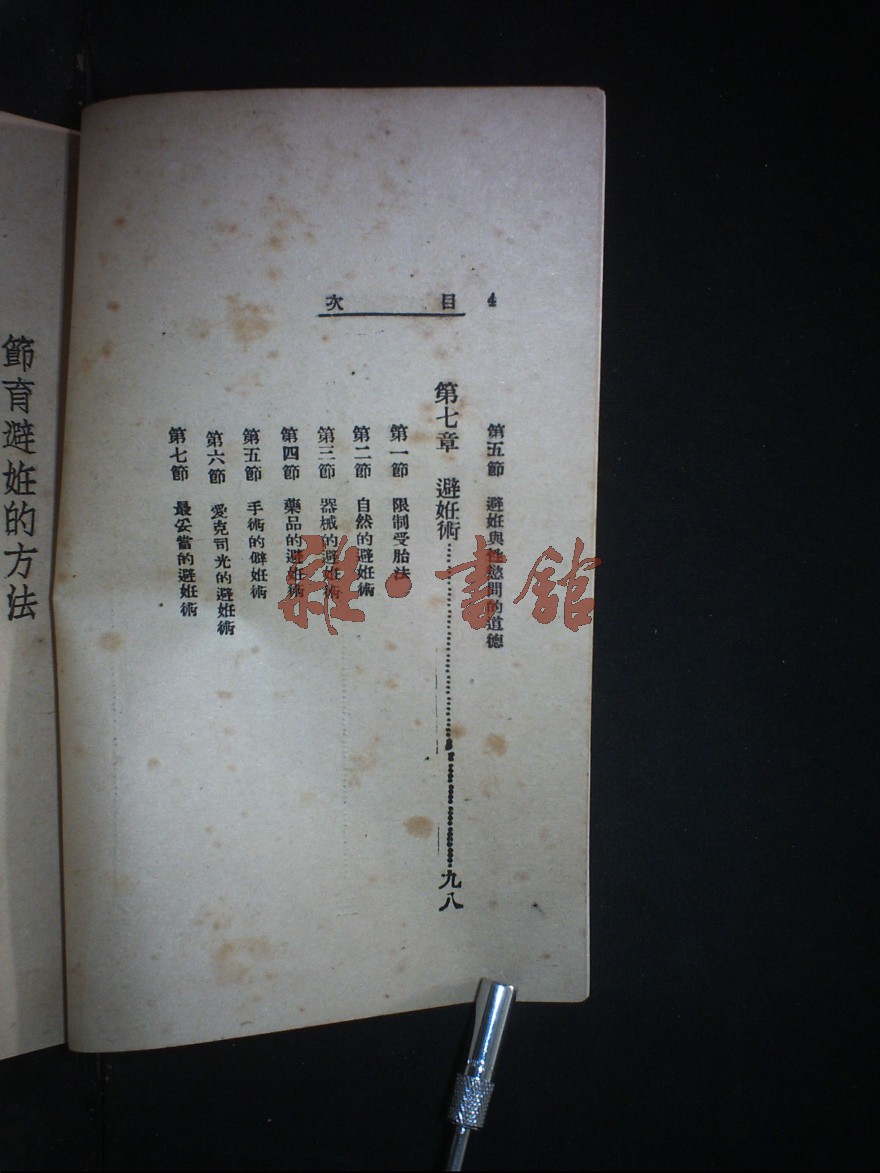 4 目次
第五節 避妊與性慾間的道德
第七章 避妊術……九八
第一節 限制受胎法
第二節 自然的避妊術
第三節 器械的避妊術
第四節 藥品的避妊術
第五節 手術的僻妊術
第六節 愛克司光的避妊術
第七節 最妥當的避妊術
節育避妊的方法
雜·書館